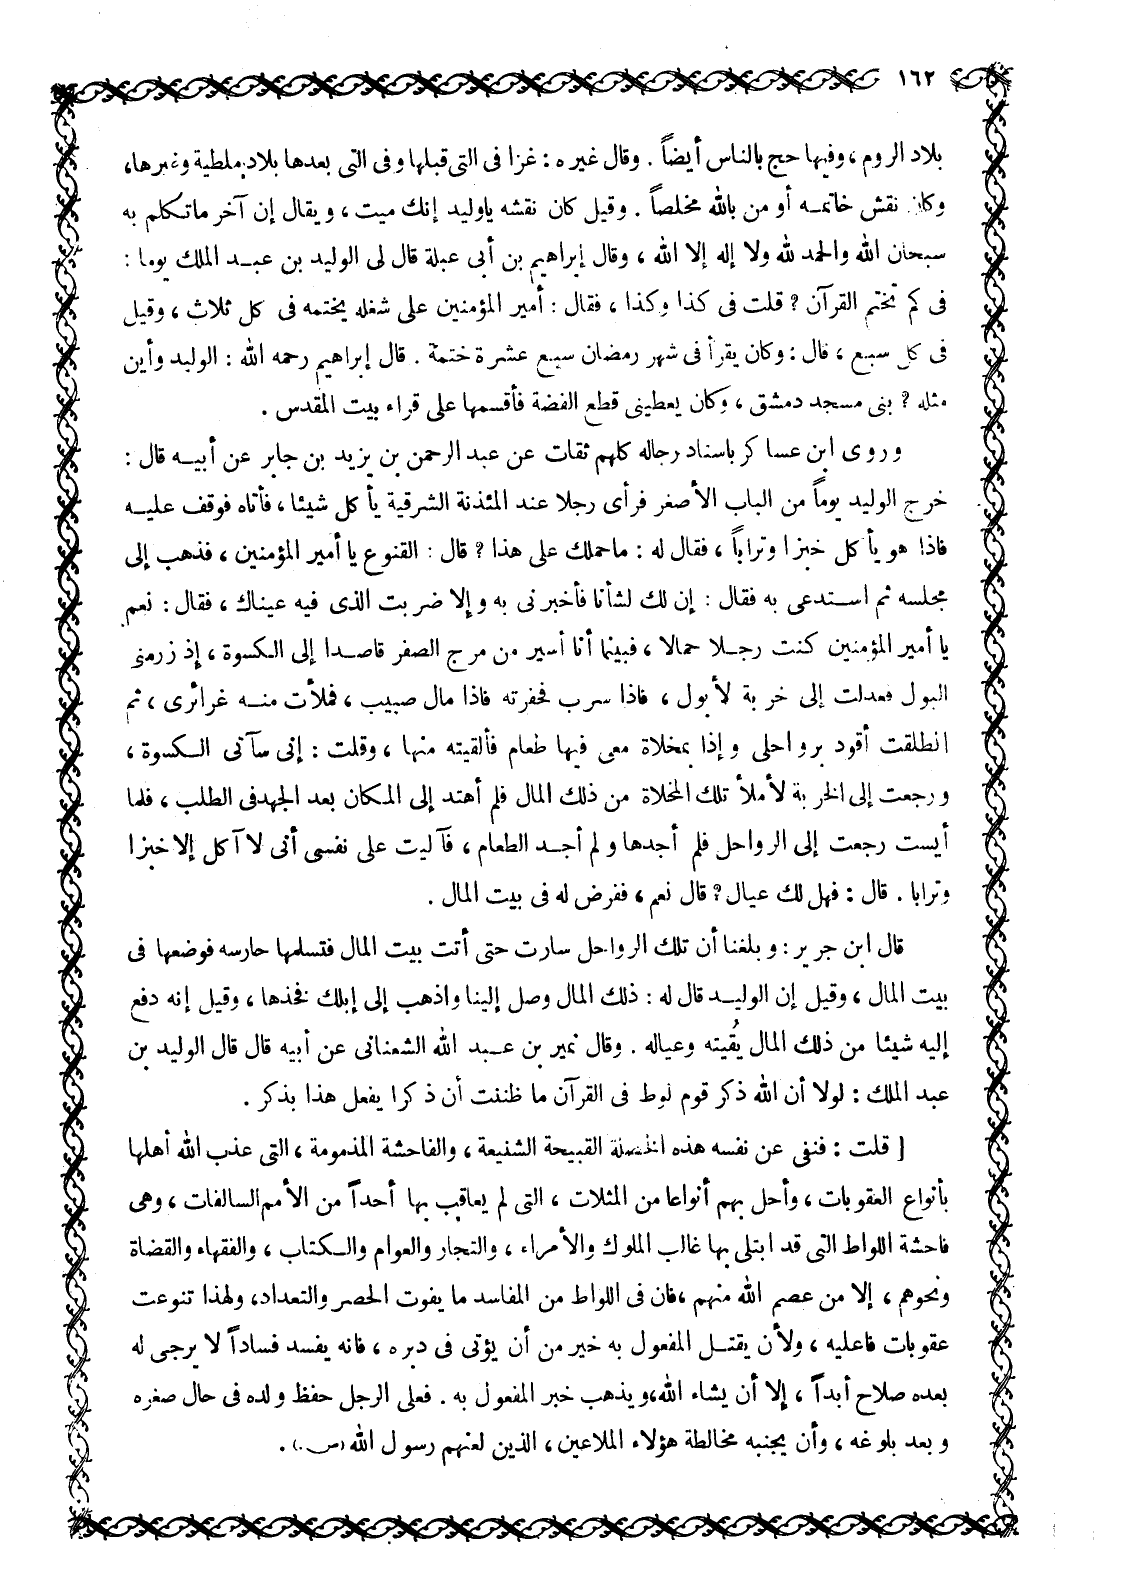 ١٦٢
بلاد الروم ، وفيها حج بالناس أيضاً . وقال غيره : غزا فى التى قبلها وفى التى بعدها بلاد ملطية وغيرها،
وكان نقش خاتمـه أو من بالله مخلصاً . وقيل كان نقشه ياوليد إنك ميت ، ويقال إن آخر ماتكلم به
سبحان الله والحمد لله ولا إله إلا الله ، وقال إبراهيم بن أبى عبلة قال لى الوليد بن عبـد الملك يوما :
فى كم تختم القرآن ؟ قلت فى كذا وكذا ، فقال : أمير المؤمنين على شغله يختمه فى كل ثلاث ، وقيل
فى كل سبع ، قال : وكان يقرأ فى شهر رمضان سبع عشرة ختمة . قال إبراهيم رحمه الله : الوليد وأين
مثله ؟ بنى مسجد دمشق ، وكان يعطينى قطع الفضة فأقسمها على قراء بيت المقدس .
وروى ابن عساكر باسناد رجاله كلهم ثقات عن عبد الرحمن بن يزيد بن جابر عن أبيـه قال :
خرج الوليد يوماً من الباب الأصغر فرأى رجلا عند المئذنة الشرقية يأكل شيئا ، فأتاه فوقف عليـه
فاذا هو يأكل خبزا وتراباً ، فقال له : ماحملك على هذا ؟ قال : القنوع يا أمير المؤمنين ، فذهب إلى
مجلسه ثم استدعى به فقال : إن لك لشأنا فأخبرنى به وإلا ضربت الذى فيه عيناك ، فقال : نعم
يا أمير المؤمنين كنت رجـلا حمالا ، فبينما أنا أسير من مرج الصفر قاصـدا إلى الكسوة ، إذ زرمنى
البول فعدلت إلى خربة لأبول ، فاذا سرب فحفرته فاذا مال صبيب ، فملأت منـه غرائرى ، ثم
انطلقت أقود برواحلى وإذا بمخلاة معى فيها طعام فألقيته منها ، وقلت : إنى سآتى الـكسوة ،
ورجعت إلى الخربة لأملأ تلك المخلاة من ذلك المال فلم أهتد إلى المكان بعد الجهد فى الطلب ، فلما
أيست رجعت إلى الرواحل فلم أجدها ولم أجـد الطعام ، فآليت على نفسى أنى لا آكل إلا خبزا
وترابا . قال : فهل لك عيال ؟ قال نعم ، ففرض له فى بيت المال .
قال ابن جرير : وبلغنا أن تلك الرواحل سارت حتى أتت بيت المال فتسلمها حارسه فوضعها فى
بيت المال ، وقيل إن الوليـد قال له : ذلك المال وصل إلينا واذهب إلى إبلك فخذها ، وقيل إنه دفع
إليه شيئا من ذلك المال يُقيته وعياله . وقال نمير بن عـبد الله الشعنانى عن أبيه قال قال الوليد بن
عبد الملك : لولا أن الله ذكر قوم لوط فى القرآن ما ظننت أن ذكرا يفعل هذا بذكر .
[ قلت : فنفى عن نفسه هذه الخصلة القبيحة الشنيعة ، والفاحشة المذمومة ، التى عذب الله أهلها
بأنواع العقوبات ، وأحل بهم أنواعا من المثلات ، التى لم يعاقب بها أحداً من الأمم السالفات ، وهى
فاحشة اللواط التى قد ابتلى بها غالب الملوك والأمراء ، والتجار والعوام والـكتاب ، والفقهاء والقضاة
ونحوهم ، إلا من عصم الله منهم ، فان فى اللواط من المفاسد ما يفوت الحصر والتعداد، ولهذا تنوعت
عقوبات فاعليه ، ولأن يقتـل المفعول به خير من أن يؤتى فى دبره ، فانه يفسد فساداً لا يرجى له
بعده صلاح أبداً ، إلا أن يشاء الله، ويذهب خبر المفعول به . فعلى الرجل حفظ ولده فى حال صغره
وبعد بلوغه ، وأن يجنبه مخالطة هؤلاء الملاعين ، الذين لعنهم رسول الله (س.) .